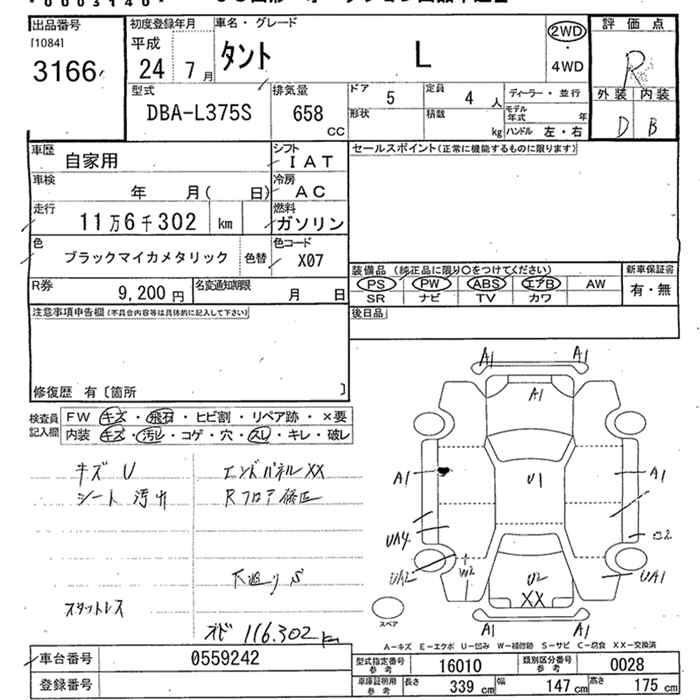 出品番号
[1084]
3166
初度登録年月
平成
24 7月
車名・グレード
タント L
2WD
・
4WD
評価点
R
外装 内装
D B
型式
DBA-L375S
排気量
658
CC
ドア 5
定員 4 人
形状
積数 kg
ディーラー・並行
モデル年式 年
ハンドル 左・右
車歴 自家用
シフト IAT
車検 年 月( 日)
冷房 AC
走行 11万6千302 km
燃料 ガソリン
色 ブラックマイカメタリック 色替
色コード X07
R券 9,200円
名変通知期限 月 日
セールスポイント(正常に機能するものに限ります)
装備品 (純正品に限り○をつけてください)
PS PW ABS エアB AW
SR ナビ TV カワ
新車保証書
有・無
後日品
注意事項申告欄(不具合内容等は具体的に記入して下さい)
修復歴 有〔箇所 〕
検査員記入欄
FW キズ・飛石・ヒビ割・リペア跡・×要
内装 キズ・汚レ・コゲ・穴・スレ・キレ・破レ
キズ U
シート 汚れ
エンドパネルXX
Rフロア修正
下廻りS
スタットレス
メーター 116.302 km
A1 A1
A1
A1 U1 A1
UA4
UA2 W2 U2 UA1
XX
A1 A1
スペア
A－キズ E－エクボ U－凹み W－補修跡 S－サビ C－腐食 XX－交換済
車台番号 0559242
登録番号
型式指定番号参考 16010
類別区分番号参考 0028
車庫証明用参考
長さ 339 cm
幅 147 cm
高さ 175 cm